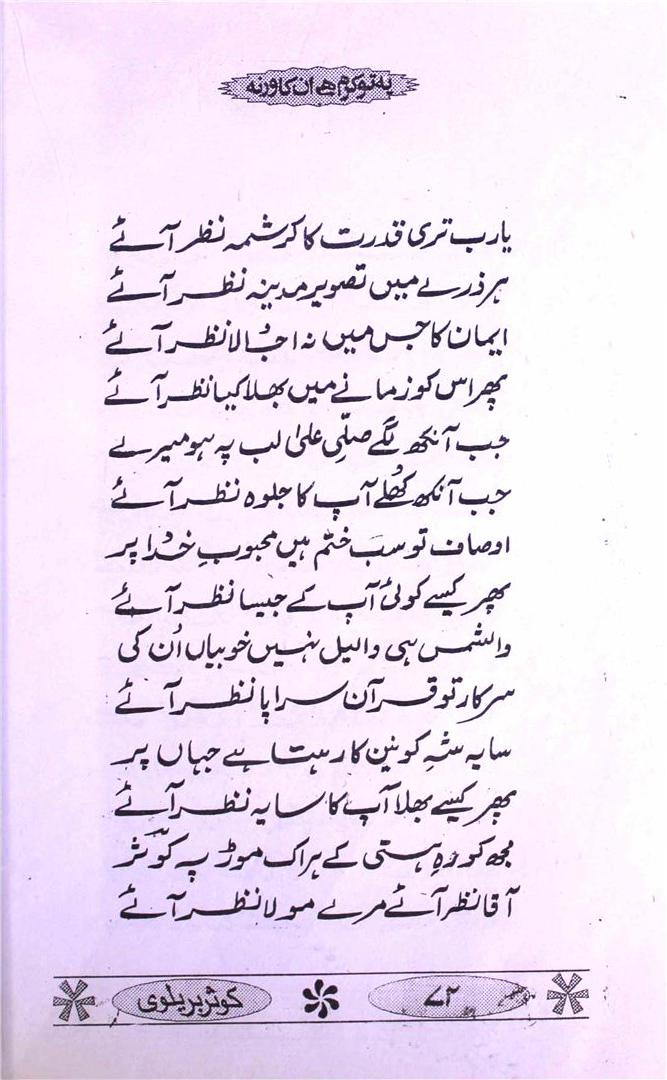 یہ تو کرم ہے ان کا ورنہ
یارب تری قدرت کا کرشمہ نظر آئے
ہر ذرے میں تصویر مدینہ نظر آئے
ایمان کا جس میں نہ اُجالا نظر آئے
پھر اس کو زمانے میں بھلا کیا نظر آئے
جب آنکھ لگے صلّی علیٰ لب پہ ہو میرے
جب آنکھ کُھلے آپ کا جلوہ نظر آئے
اوصاف تو سب ختم ہیں محبوبِ خُدا پر
پھر کیسے کوئی آپ کے جیسا نظر آئے
والشمس ہی والیل نہیں خوبیاں اُن کی
سرکار تو قرآن سراپا نظر آئے
سایہ شہِ کونین کا رہتا ہے جہاں پر
پھر کیسے بھلا آپ کا سایہ نظر آئے
مجھ کو رہِ ہستی کے ہر اک موڑ پہ کوثر
آقا نظر آئے مرے مولا نظر آئے
کوثر بریلوی
۷۲